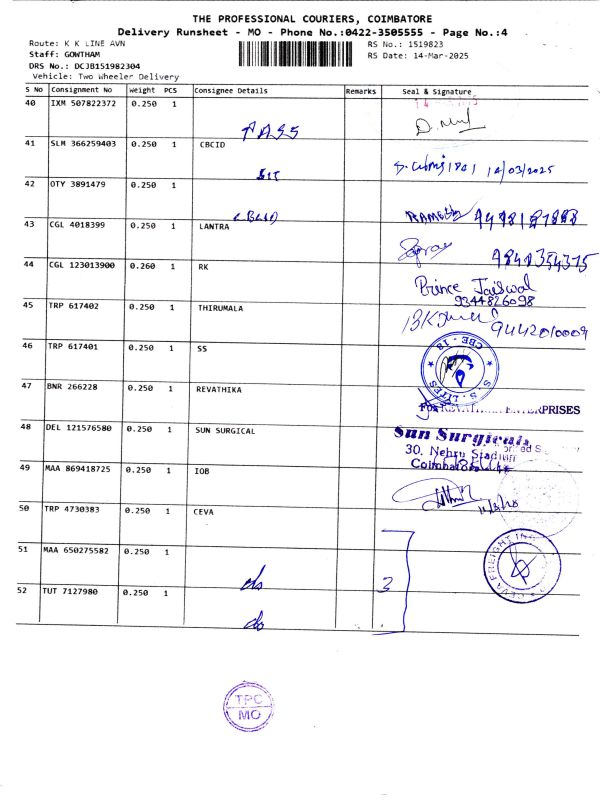 THE PROFESSIONAL COURIERS, COIMBATORE
Delivery Runsheet - MO - Phone No.:0422-3505555 - Page No.:4
Route: K K LINE AVN
RS No.: 1519823
Staff: GOWTHAM
RS Date: 14-Mar-2025
DRS No.: DCJB151982304
Vehicle: Two Wheeler Delivery
S No Consignment No Weight PCS Consignee Details Remarks Seal & Signature
40 IXM 507822372 0.250 1
41 SLM 366259403 0.250 1 CBCID
14/03/2025
42 OTY 3891479 0.250 1
43 CGL 4018399 0.250 1 LANTRA
44 CGL 123013900 0.260 1 RK
Prince Jaiswal
9344826098
45 TRP 617402 0.250 1 THIRUMALA
9442010009
46 TRP 617401 0.250 1 SS
CBE - 18
S. S. LITES
47 BNR 266228 0.250 1 REVATHIKA
For REVATHIKA ENTERPRISES
48 DEL 121576580 0.250 1 SUN SURGICAL
Sun Surgicals
30, Nehru Stadium
49 MAA 869418725 0.250 1 IOB
50 TRP 4730383 0.250 1 CEVA
51 MAA 650275582 0.250 1
do 3
52 TUT 7127980 0.250 1
do
TPC
MO